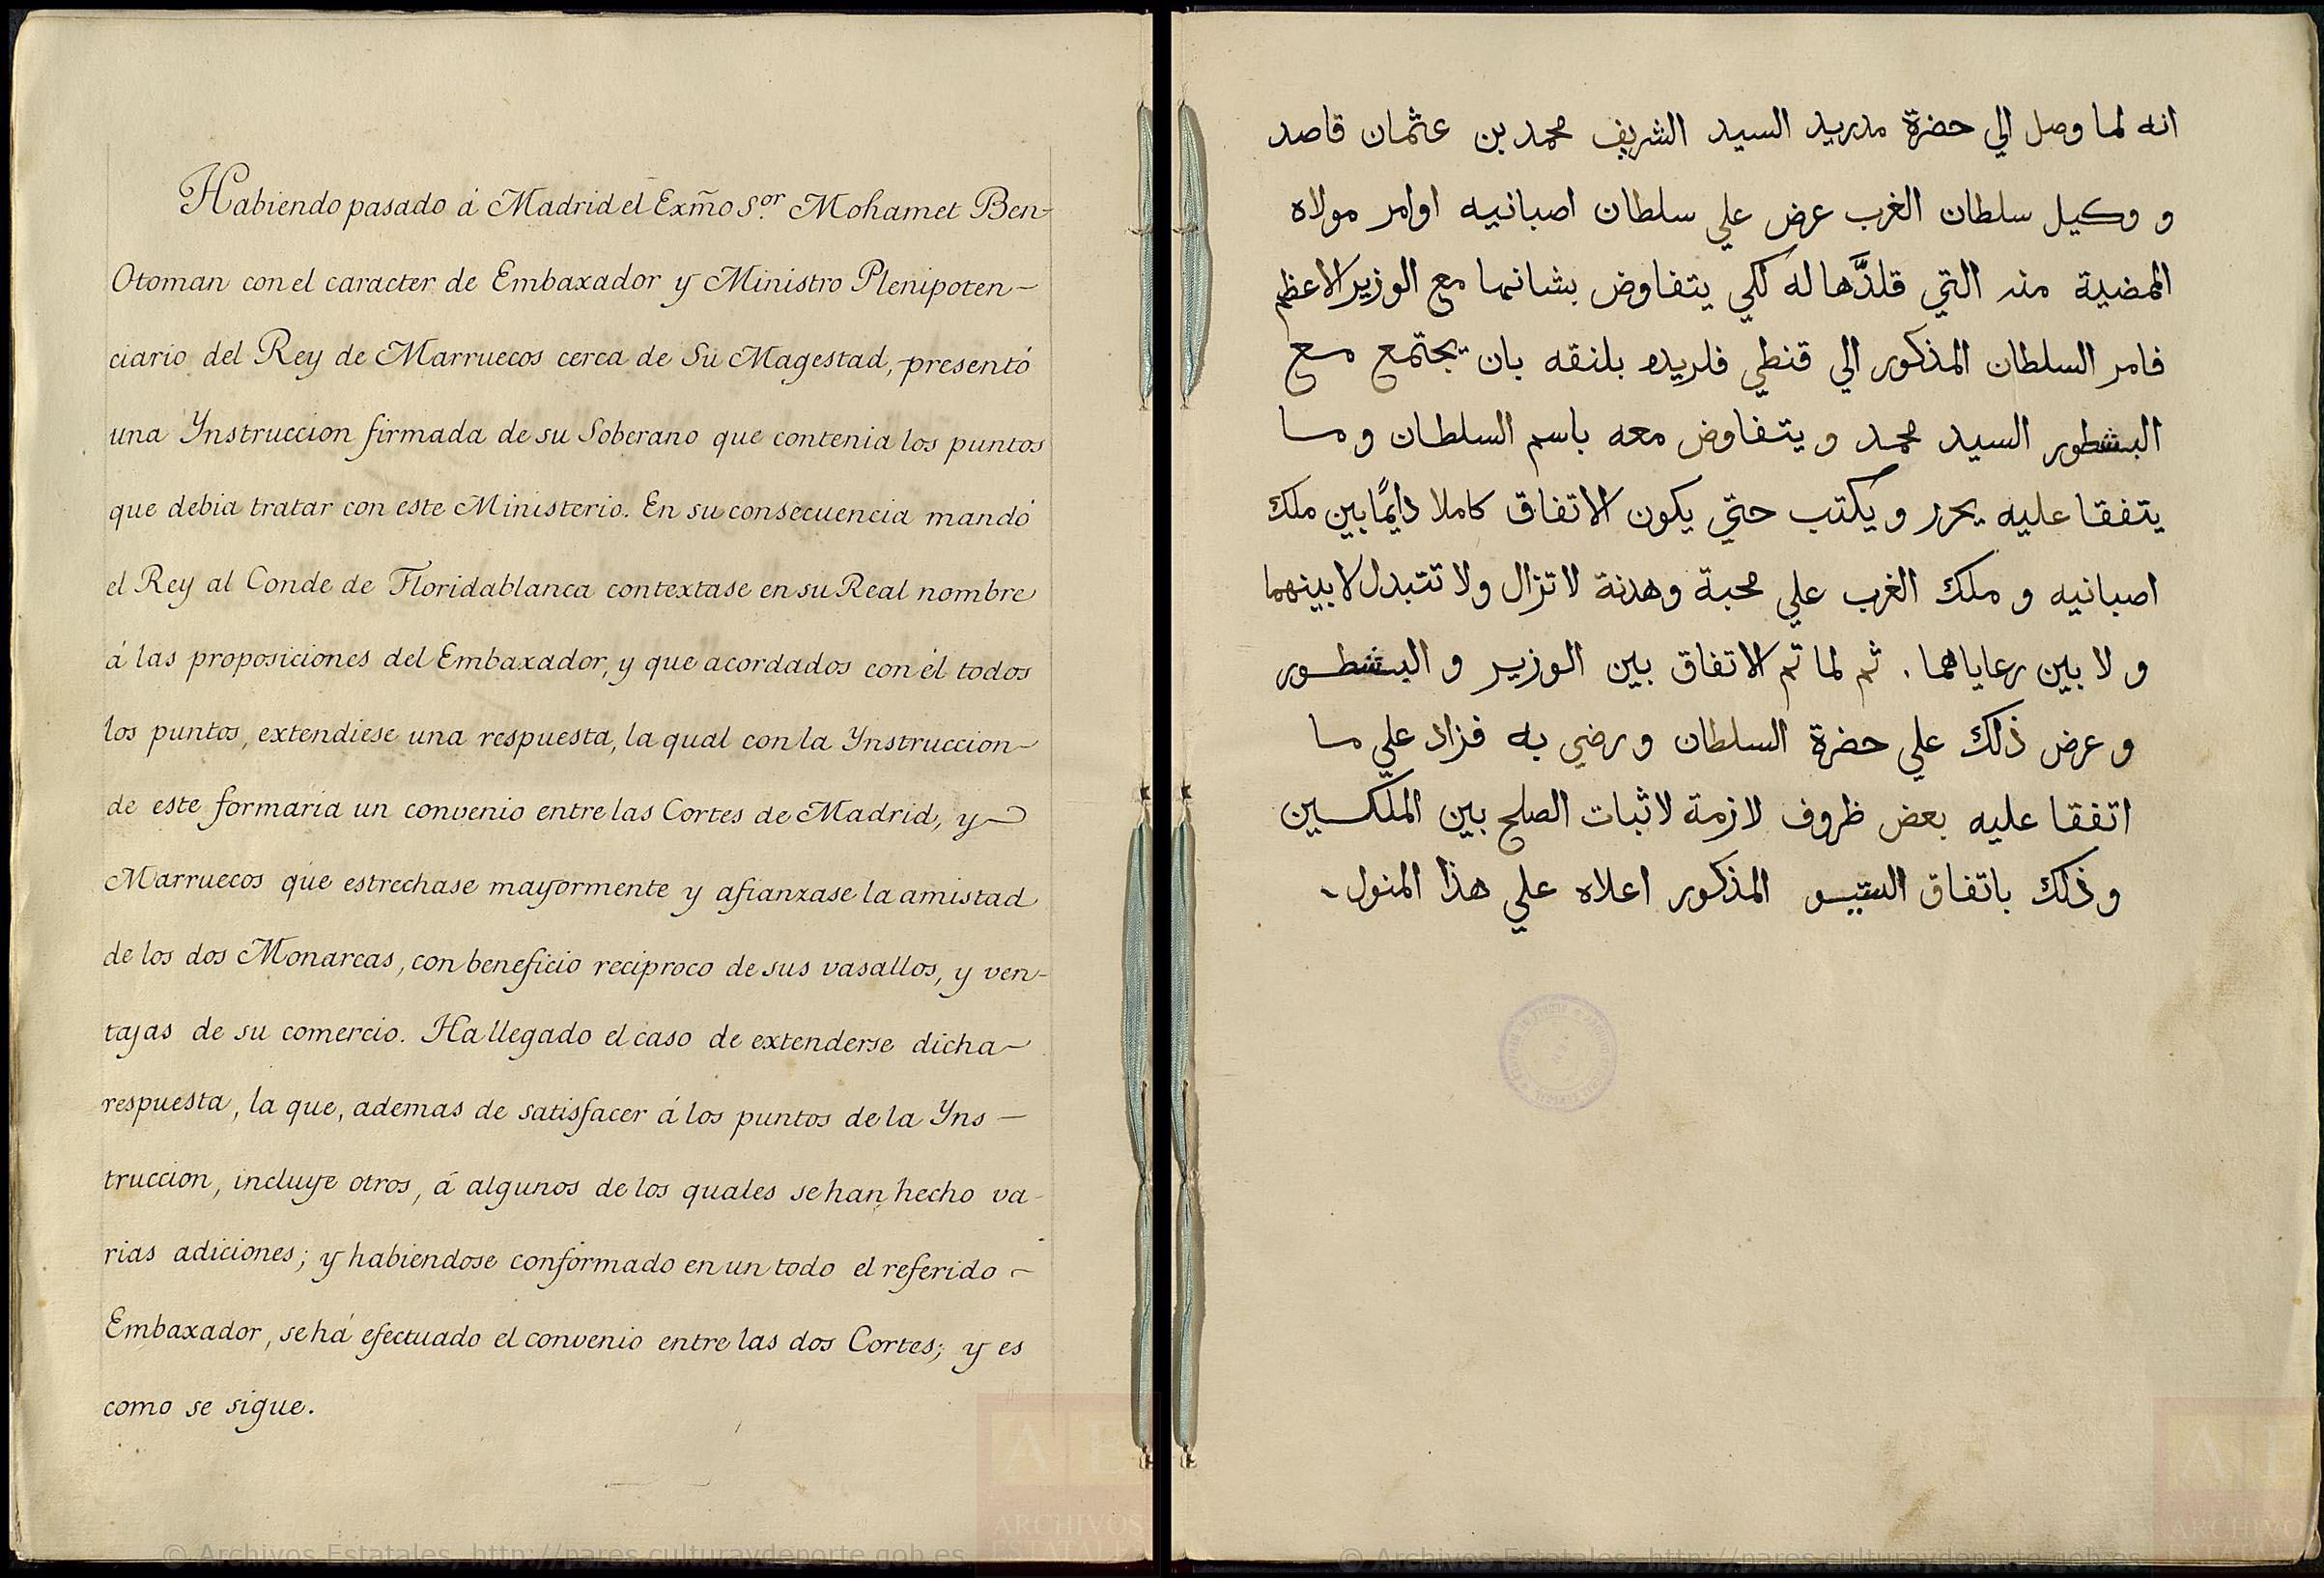 Habiendo pasado á Madrid el Exm̃o S.or Mohamet Ben-
Otoman con el caracter de Embaxador y Ministro Plenipoten-
ciario del Rey de Marruecos cerca de Su Magestad, presentó
una Ynstruccion firmada de su Soberano que contenia los puntos
que debia tratar con este Ministerio. En su consecuencia mandó
el Rey al Conde de Floridablanca contextase en su Real nombre
á las proposiciones del Embaxador, y que acordados con él todos
los puntos, extendiese una respuesta, la qual con la Ynstruccion
de este formaria un convenio entre las Cortes de Madrid, y
Marruecos que estrechase mayormente y afianzase la amistad
de los dos Monarcas, con beneficio reciproco de sus vasallos, y ven-
tajas de su comercio. Ha llegado el caso de extenderse dicha
respuesta, la que, ademas de satisfacer á los puntos de la Yns-
truccion, incluye otros, á algunos de los quales se han hecho va-
rias adiciones; y habiendose conformado en un todo el referido
Embaxador, se há efectuado el convenio entre las dos Cortes; y es
como se sigue.
انه لما وصل الي حضرة مدريد السيد الشريف محمد بن عثمان قاصد
و وكيل سلطان الغرب عرض علي سلطان اصبانيه اوامر مولاه
الممضية منه التي قلدَّها له لكي يتفاوض بشانها مع الوزير الاعظم
فامر السلطان المذكور الي قنطي فلريده بلنقه بان يجتمع مع
البشطور السيد محمد و يتفاوض معه باسم السلطان و ما
يتفقا عليه يحرر و يكتب حتي يكون الاتفاق كاملا دايمًا بين ملك
اصبانيه و ملك الغرب علي محبة وهدنة لا تزال ولا تتبدل لا بينهما
و لا بين رعاياهما . ثم لما تم الاتفاق بين الوزير و البشطور
و عرض ذلك علي حضرة السلطان و رضي به فزاد علي ما
اتفقا عليه بعض ظروف لازمة لاثبات الصلح بين الملكين
و ذلك باتفاق المذكور اعلاه علي هذا المنول
© Archivos Estatales, http://pares.culturaydeporte.gob.es
© Archivos Estatales, http://pares.culturaydeporte.gob.es
A E
ARCHIVOS
ESTATALES